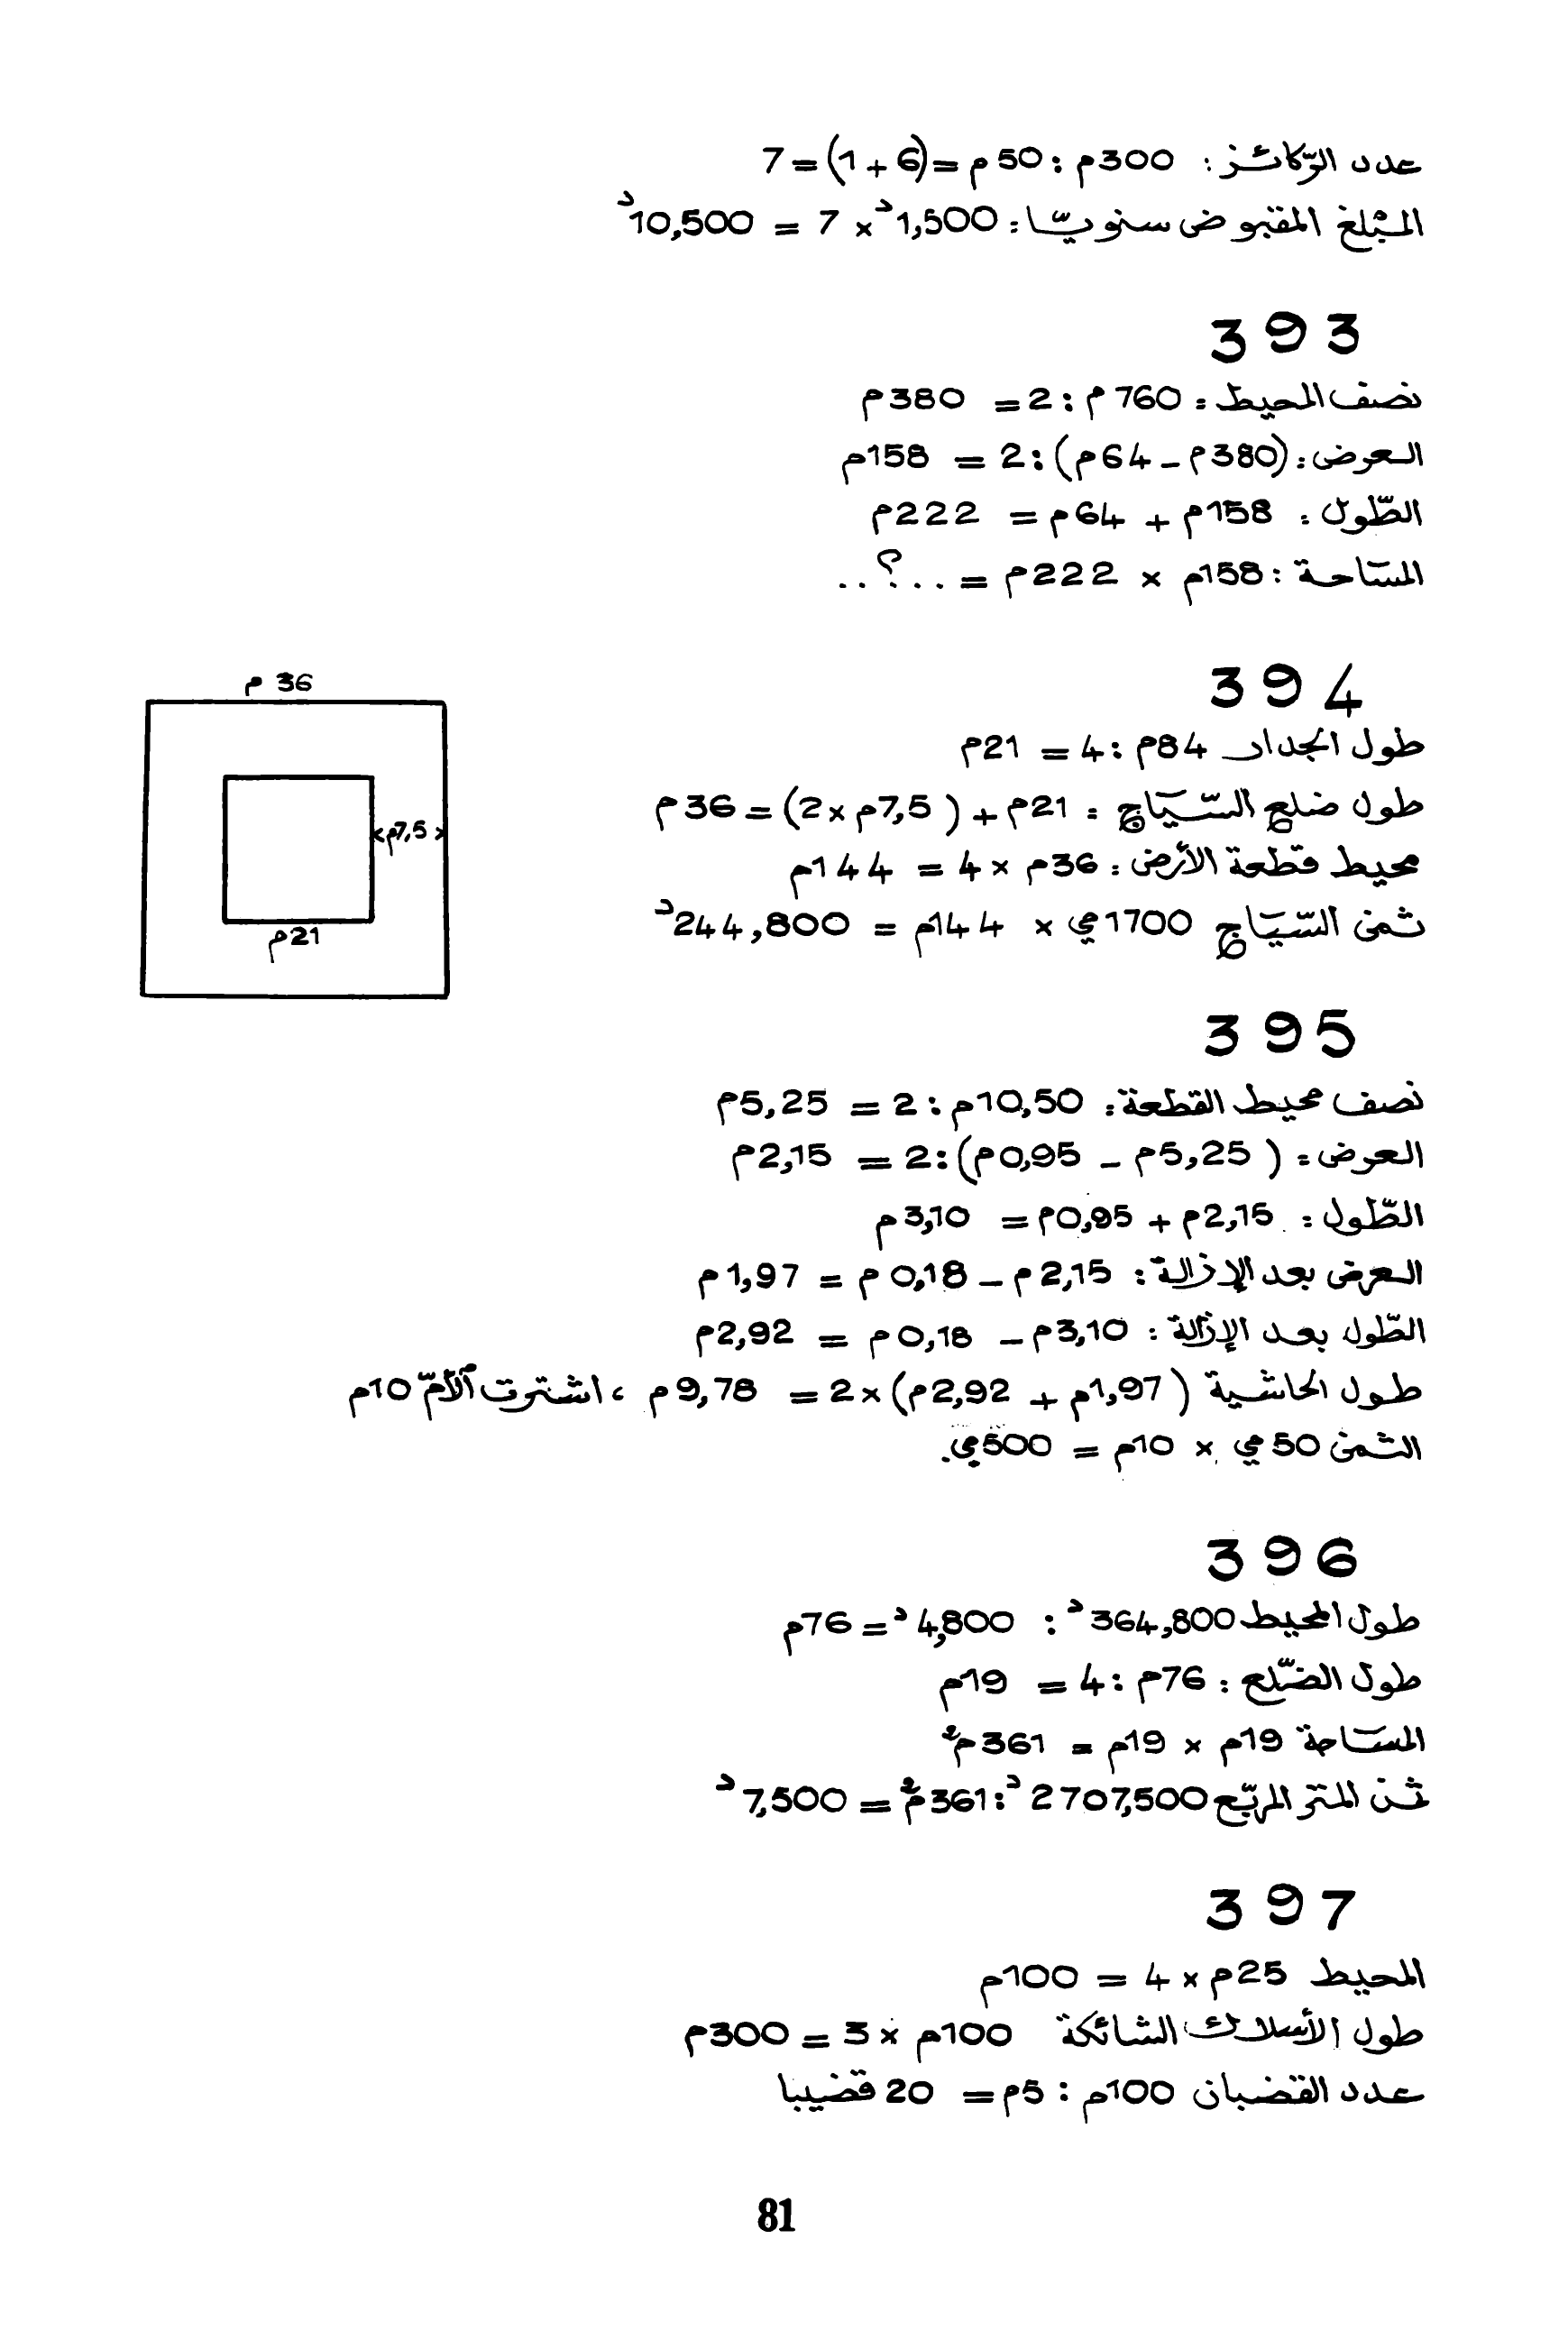 عدد الرّكائز : 300م : 50م = (6 + 1) = 7
المبلغ المقبوض سنويّا : 1,500د × 7 = 10,500د
393
نصف المحيط : 760م : 2 = 380م
العرض : (380م - 64م) : 2 = 158م
الطّول : 158م + 64م = 222م
المسّاحة : 158م × 222م = ..؟..
394
طول الجدار 84م : 4 = 21م
طول ضلع السّيّاج : 21م + ( 7,5م × 2) = 36م
محيط قطعة الأرض : 36م × 4 = 144م
ثمن السّيّاج 1700مي × 144م = 244,800د
36 م
7,5م
21م
395
نصف محيط القطعة : 10,50م : 2 = 5,25م
العرض : ( 5,25م - 0,95م) : 2 = 2,15م
الطّول : 2,15م + 0,95م = 3,10م
العرض بعد الإزالة : 2,15م - 0,18م = 1,97م
الطّول بعد الإزالة : 3,10م - 0,18م = 2,92م
طول الحاشية ( 1,97م + 2,92م) × 2 = 9,78م ، اشترت الأمّ 10م
الثمن 50مي × 10م = 500مي.
396
طول المحيط 364,800د : 4,800د = 76م
طول الضّلع : 76م : 4 = 19م
المسّاحة 19م × 19م = 361م²
ثمن المتر المربّع 2707,500د : 361م² = 7,500د
397
المحيط 25م × 4 = 100م
طول الأسلاك الشائكة 100م × 3 = 300م
عدد القضبان 100م : 5م = 20 قضيبا
81